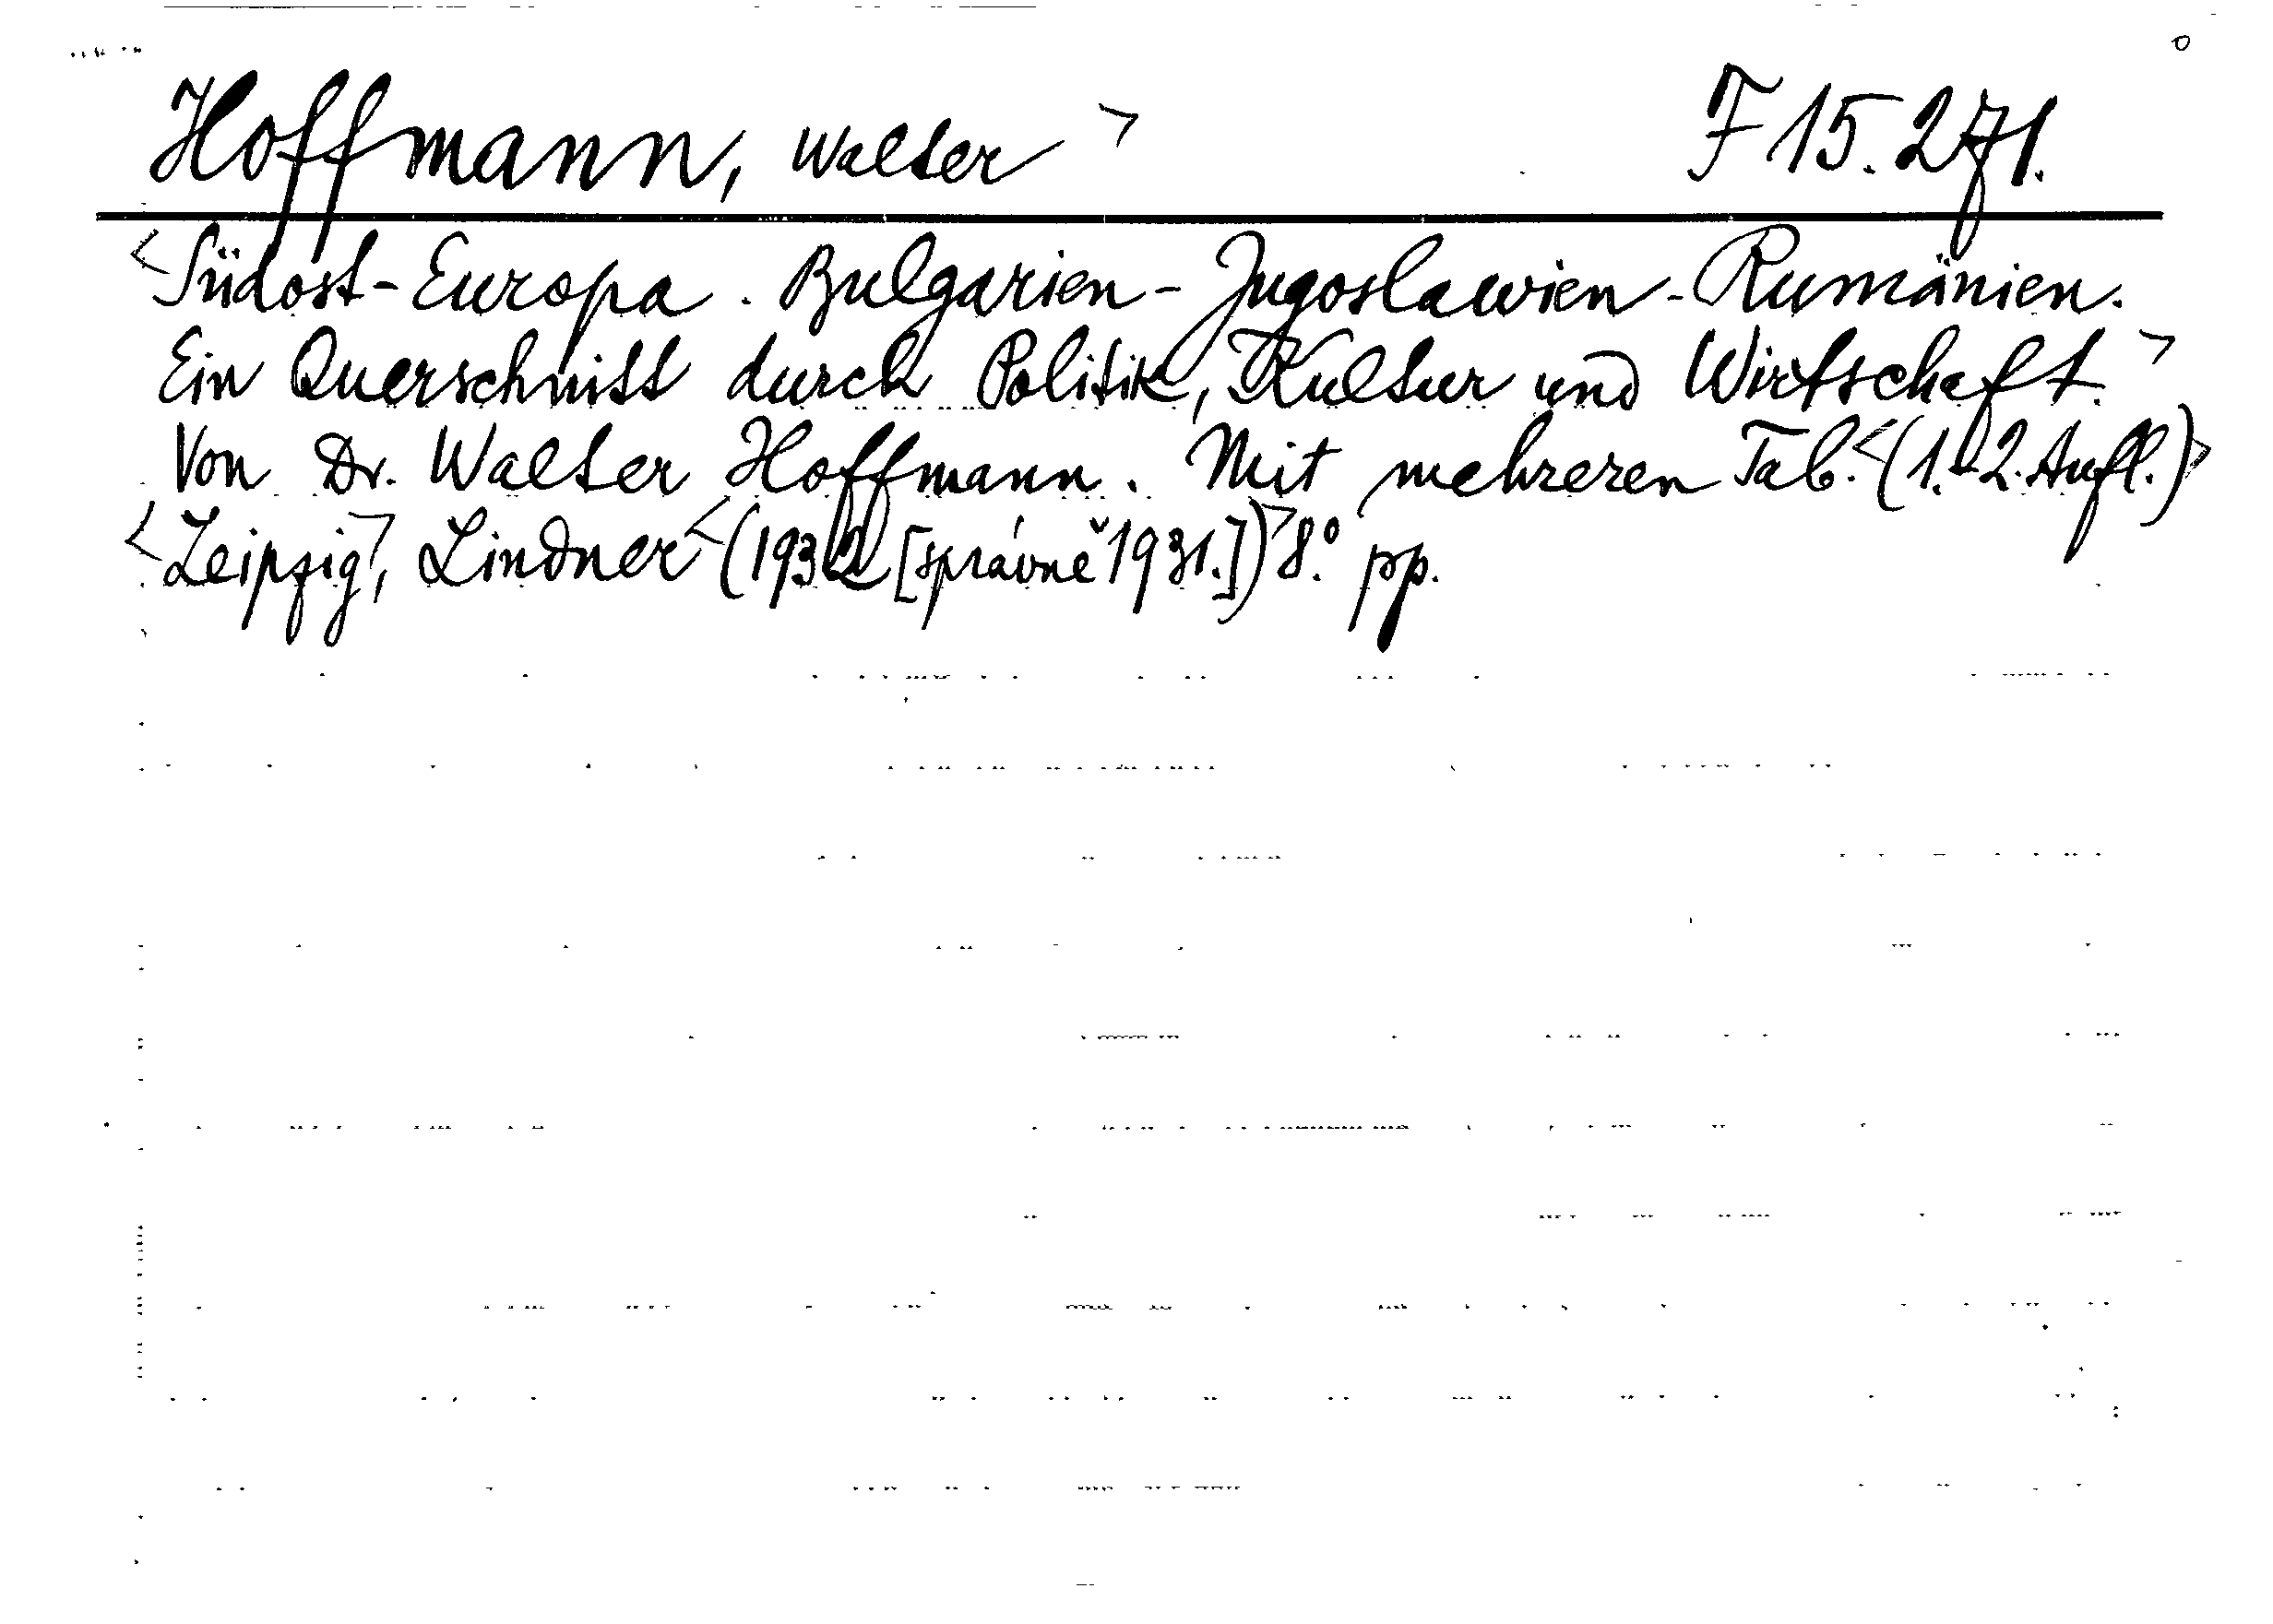 Hoffmann, Walter ¬ F 15.271.
<Südost-Europa. Bulgarien-Jugoslawien-Rumänien.
Ein Querschnitt durch Politik, Kultur und Wirtschaft.¬
Von Dr. Walter Hoffmann. Mit mehreren Tab.<(1.-2. Aufl.)>
<Leipzig¬, Lindner<(1932 [správně 1931.])¬8.° pp.